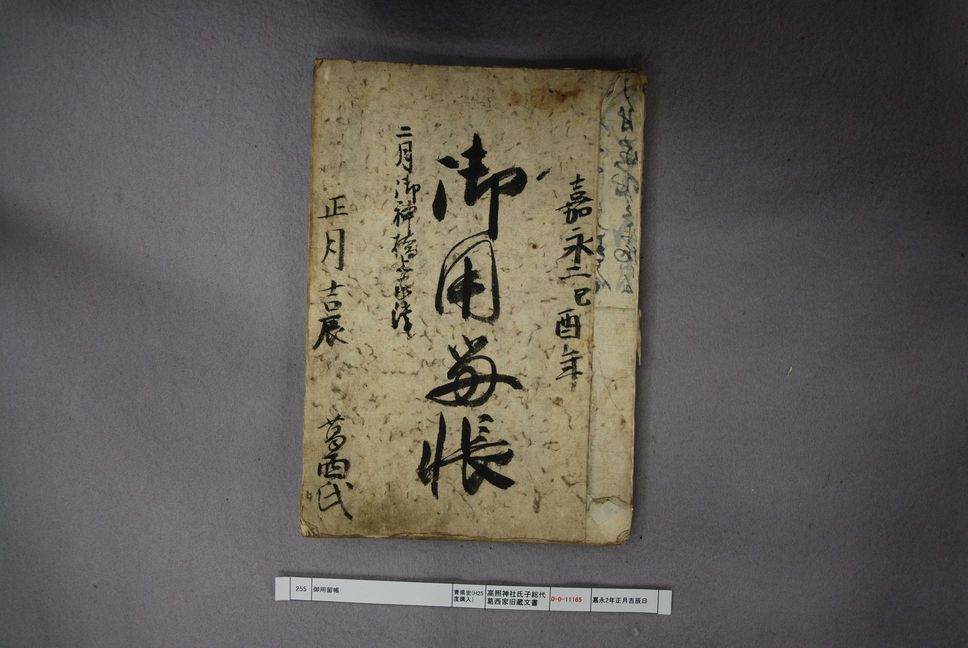 嘉永二己酉年
御用留帳
二月御神橋
正月吉辰
葛西氏
255
御用留帳
青県史(H25
度購入)
高照神社氏子総代
葛西家旧蔵文書
0-0-11165
嘉永2年正月吉辰日